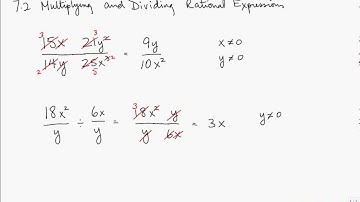 7.2 Multiplying and Dividing Rational Expressions
3 15x 3 21y² / 2 14y 25x³ 2 5 = 9y / 10x² x≠0 y≠0
18x² / y ÷ 6x / y = 3 18x² y / y 6x = 3x y≠0